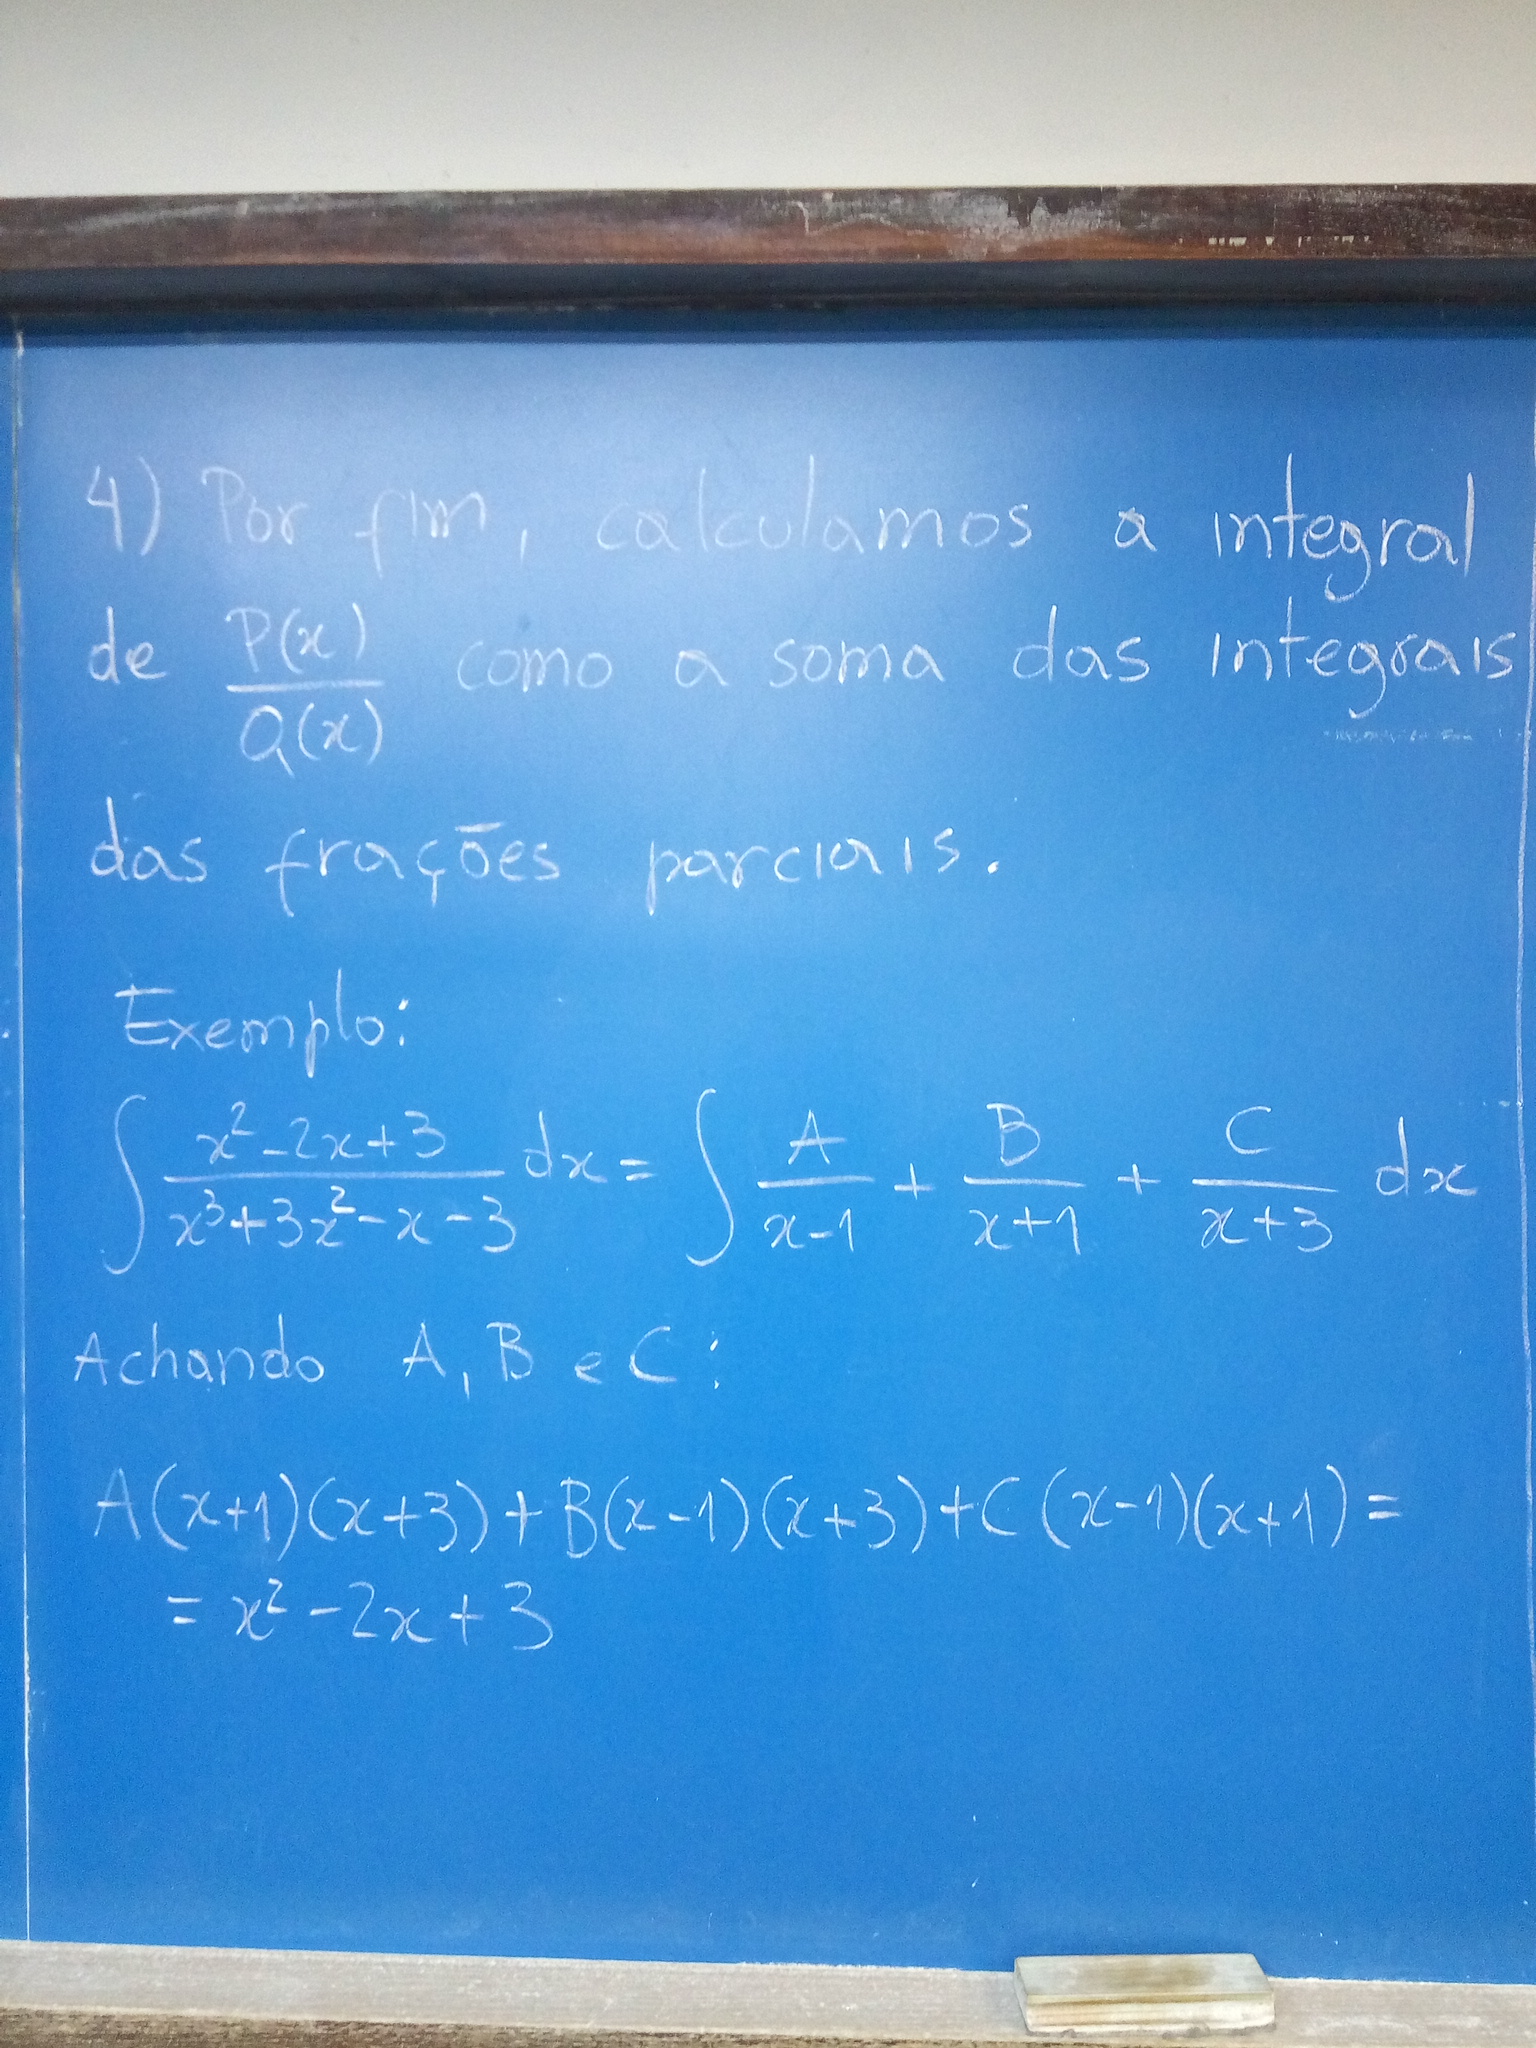 4) Por fim, calculamos a integral
de P(x)/Q(x) como a soma das integrais
das frações parciais.
Exemplo:
∫ (x²-2x+3)/(x³+3x²-x-3) dx = ∫ A/(x-1) + B/(x+1) + C/(x+3) dx
Achando A, B e C:
A(x+1)(x+3)+B(x-1)(x+3)+C(x-1)(x+1)=
= x²-2x+3